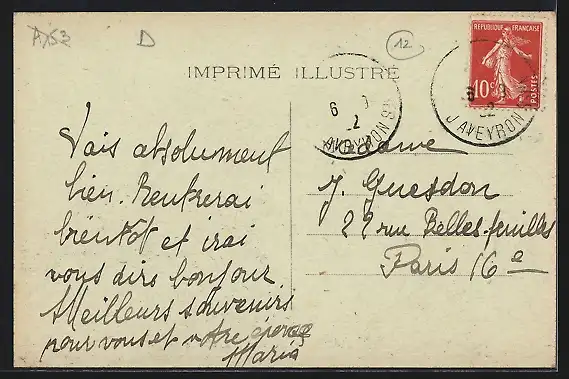 D
12
RÉPUBLIQUE FRANÇAISE
10c
POSTES
IMPRIMÉ ILLUSTRÉ
6
2
AVEYRON
6
AVEYRON
Vais absolument
bien. Rentrerai
bientôt et irai
vous dire bonjour
Meilleurs souvenirs
pour vous et votre
Maria
Madame
J. Guesdon
22 rue Belles-feuilles
Paris 16e